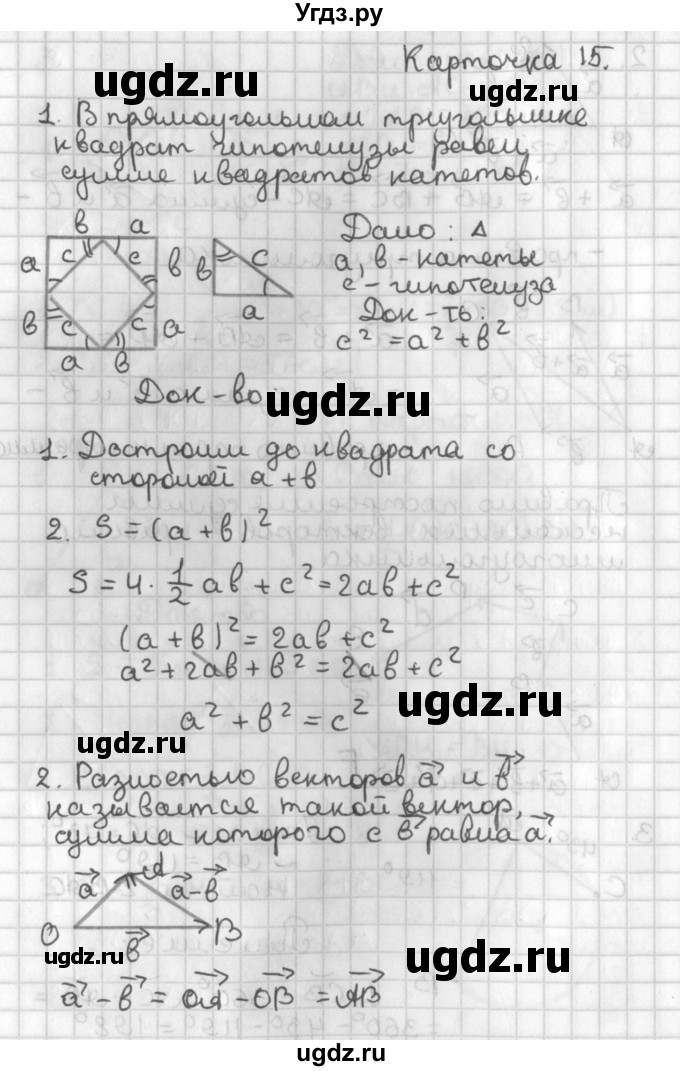 Угдз.ру
Карточка 15.
ugdz.ru ugdz.ru
1. В прямоугольном треугольнике
квадрат гипотенузы равен
сумме квадратов катетов.
в a
a c c в
в c c a
a в
в c
a
Дано: Δ
a, в - катеты
c - гипотенуза
Док-ть:
c² = a² + в²
Док-во:
ugdz.ru
1. Достроим до квадрата со
стороной a + в
2. S = (a + в)²
S = 4 · 1/2 aв + c² = 2aв + c²
(a + в)² = 2aв + c²
a² + 2aв + в² = 2aв + c²
a² + в² = c²
ugdz.ru
ugdz.ru
2. Разностью векторов a⃗ и в⃗
называется такой вектор,
сумма которого с в⃗ равна a⃗.
a⃗ A a⃗ - в⃗
O в⃗ B
ugdz.ru ugdz.ru
a⃗ - в⃗ = OA⃗ - OB⃗ = AB⃗
ugdz.ru